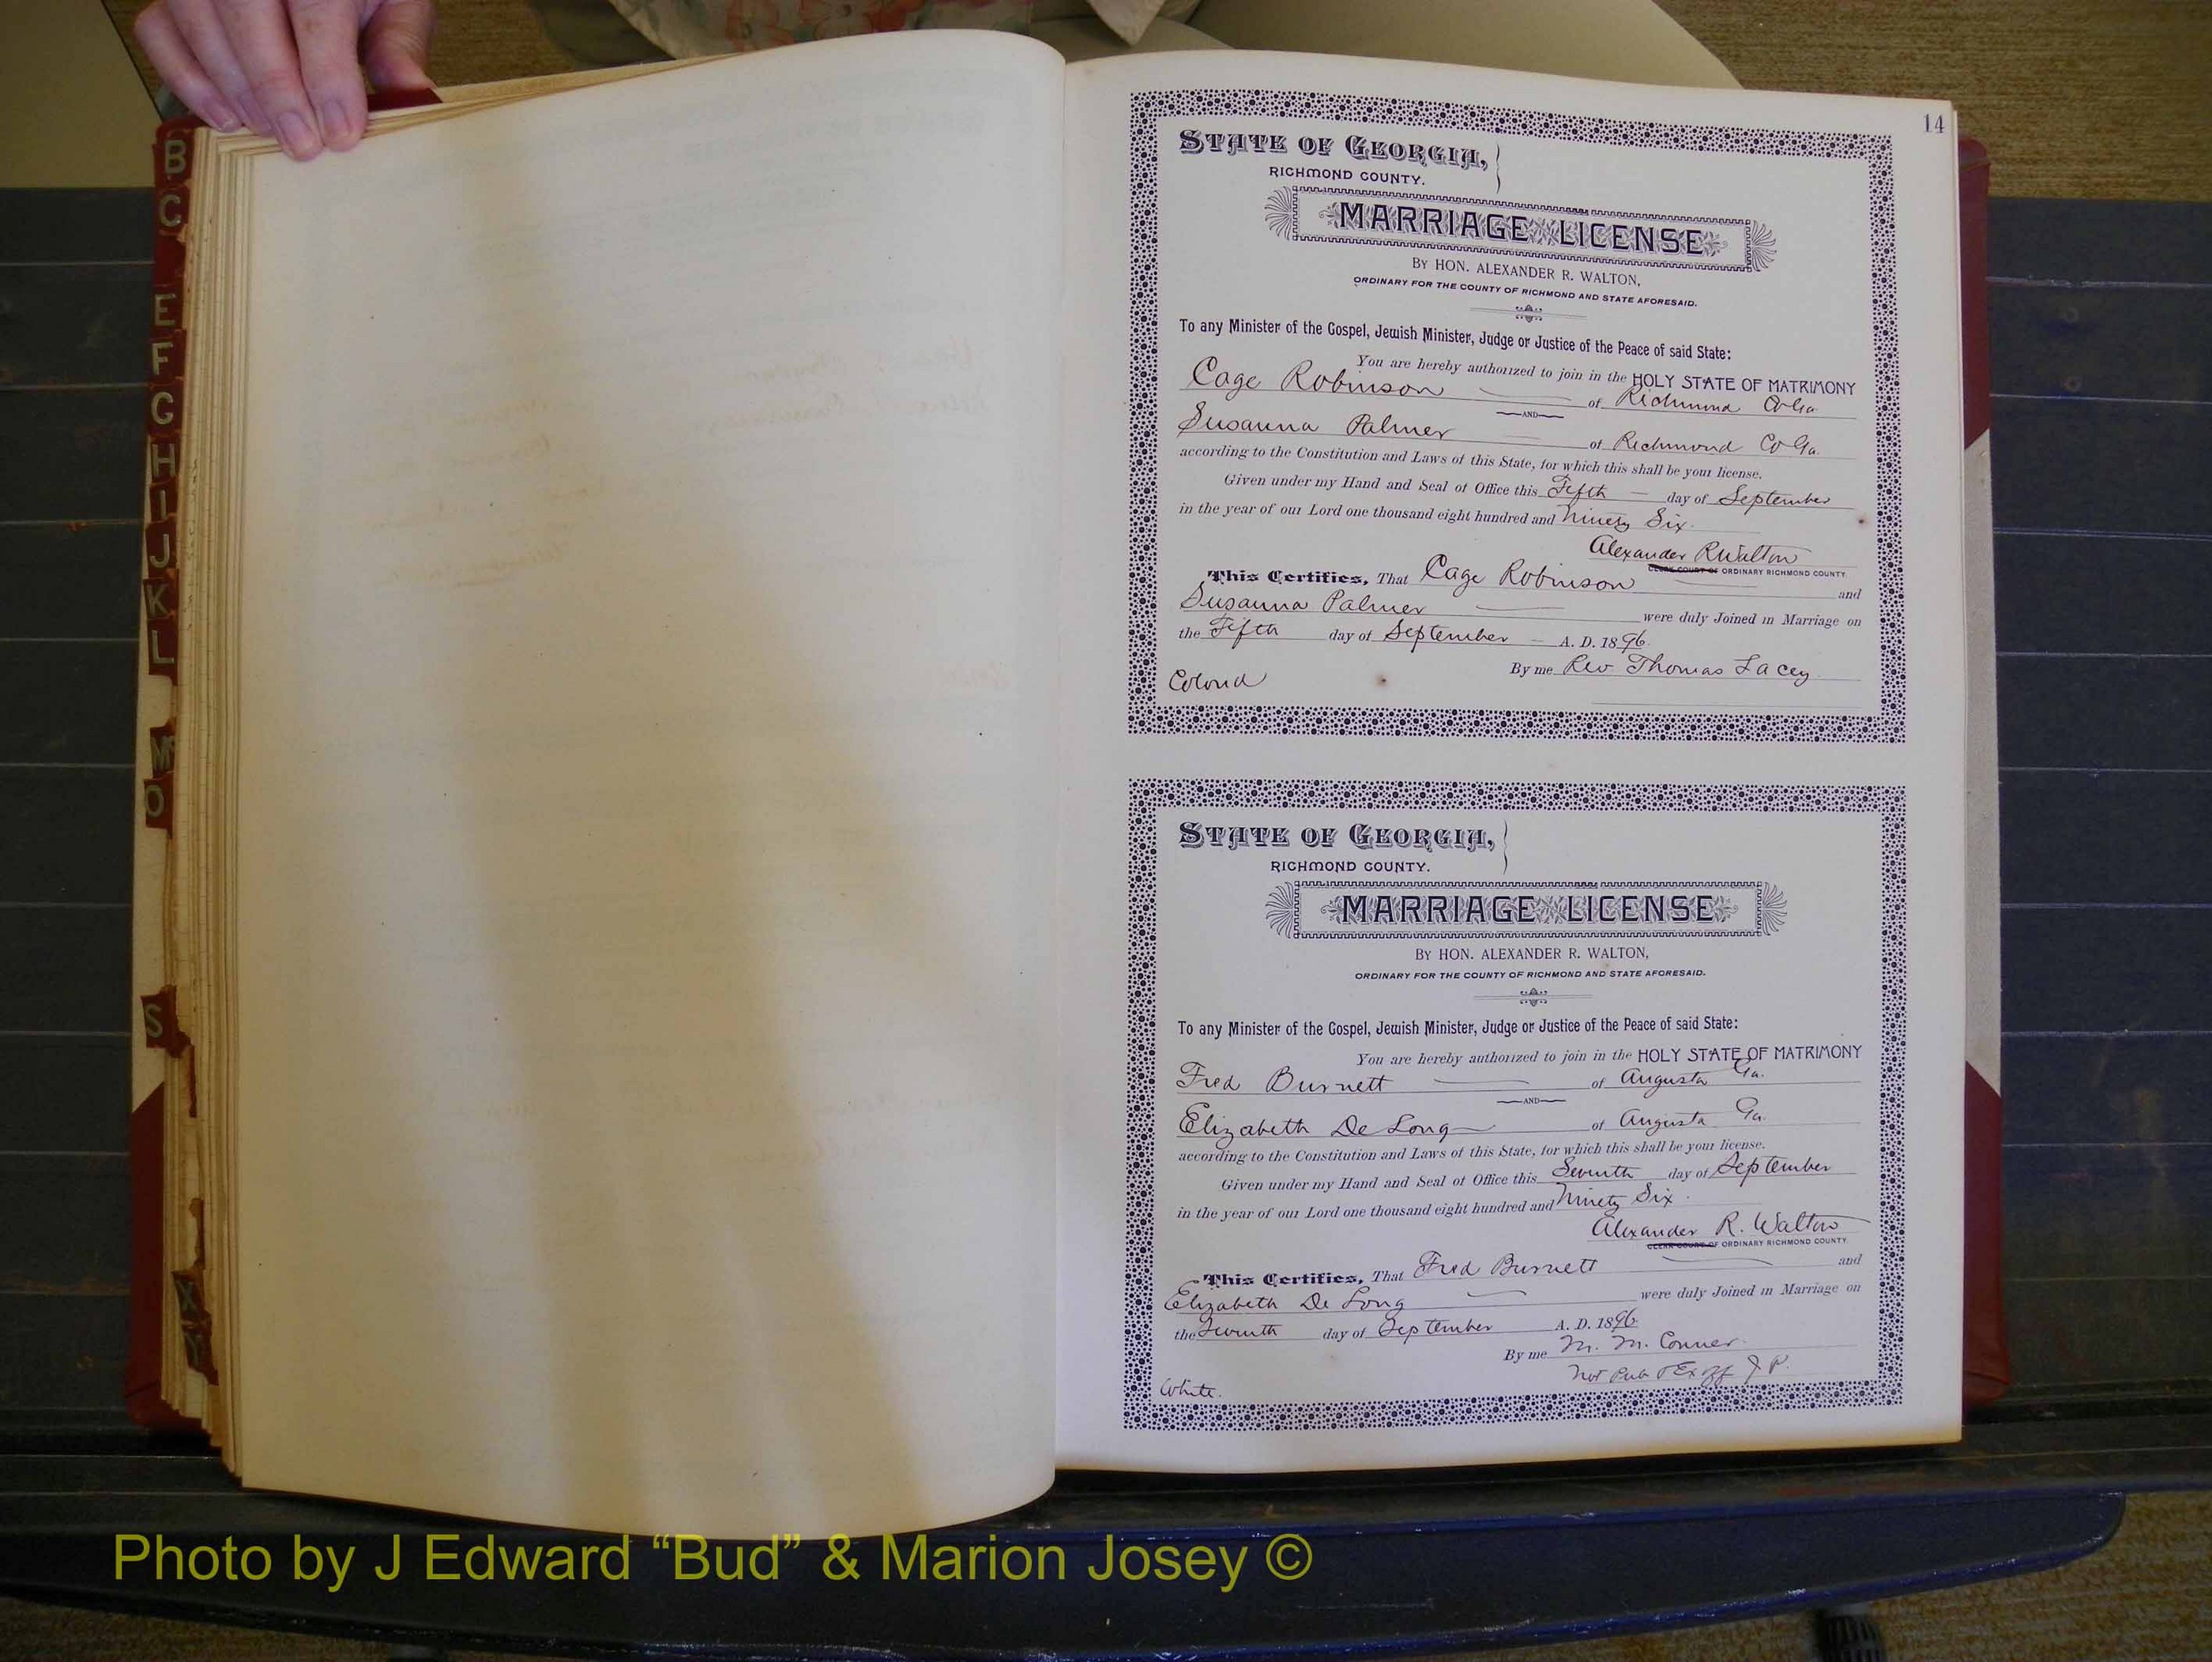 14
B
C
E
F
G
H
I
J
K
L
Mc
O
S
X
Y
STATE OF GEORGIA,
RICHMOND COUNTY.
MARRIAGE LICENSE
BY HON. ALEXANDER R. WALTON,
ORDINARY FOR THE COUNTY OF RICHMOND AND STATE AFORESAID.
To any Minister of the Gospel, Jewish Minister, Judge or Justice of the Peace of said State:
You are hereby authorized to join in the HOLY STATE OF MATRIMONY
Cage Robinson of Richmond Co Ga
AND
Susanna Palmer of Richmond Co Ga.
according to the Constitution and Laws of this State, for which this shall be your license.
Given under my Hand and Seal of Office this Fifth day of September
in the year of our Lord one thousand eight hundred and Ninety Six.
Alexander R Walton
CLERK COURT OF ORDINARY RICHMOND COUNTY
This Certifies, That Cage Robinson and
Susanna Palmer were duly Joined in Marriage on
the Fifth day of September A. D. 1896
By me Rev Thomas Lacey
Colord
STATE OF GEORGIA,
RICHMOND COUNTY.
MARRIAGE LICENSE
BY HON. ALEXANDER R. WALTON,
ORDINARY FOR THE COUNTY OF RICHMOND AND STATE AFORESAID.
To any Minister of the Gospel, Jewish Minister, Judge or Justice of the Peace of said State:
You are hereby authorized to join in the HOLY STATE OF MATRIMONY
Fred Burnett of Augusta Ga.
AND
Elizabeth De Long of Augusta Ga.
according to the Constitution and Laws of this State, for which this shall be your license.
Given under my Hand and Seal of Office this Seventh day of September
in the year of our Lord one thousand eight hundred and Ninety Six.
Alexander R. Walton
CLERK COURT OF ORDINARY RICHMOND COUNTY.
This Certifies, That Fred Burnett and
Elizabeth De Long were duly Joined in Marriage on
the Seventh day of September A. D. 1896
By me M. M. Conner.
Not Pub & Ex Off J. P.
White.
Photo by J Edward “Bud” & Marion Josey ©